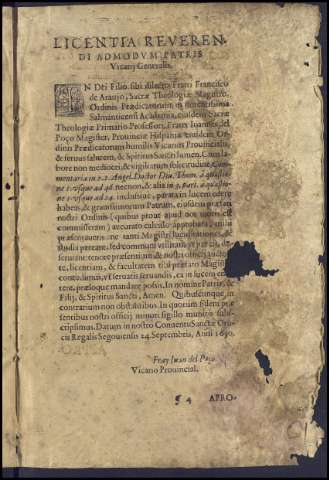 LICENTIA REVEREN-
DI ADMODVM PATRIS
Vicarij Generalis.
IN Dei Filio sibi dilecto Fratri Francisco
de Araujo, Sacræ Theologiæ Magistro,
Ordinis Prædicatorum, in florentissima
Salmanticensi Academia, eiusdem Sacræ
Theologiæ Primario Professori, Frater Ioannes del
Poço Magister, Prouinciæ Hispaniæ eiusdem Or-
dinis Prædicatorum humilis Vicarius Prouincialis,
& seruus salutem, & Spiritus Sancti lumen. Cum la-
bore non mediocri, & vigilantium solicitudine, Com-
mentaria in 2.2. Angel. Doctor. Diu. Thom. à quæstio-
ne 1. vsque ad 46. necnon, & alia in 3. part. à quæstio-
ne 1. vsque ad 24. inclusiue, parata in lucem edere
habeas, & grauissimorum Patrum, eiusdem præfati
nostri Ordinis (quibus prout apud nos moris est
commiseram) accurato calculo approbata,
præsentauere: ne tanti Magistri lucubrationes, &
studia pereant, sed communi vtilitati
seruiant: tenore præsentium, & nostri officij auctori-
te, licentiam, & facultatem tibi præfato Magistro
concedimus, vt seruatis seruandis, ea in lucem ede-
re, præloque mandare possis. In nomine Patris, &
Filij, & Spiritus Sancti, Amen. Quibuscunque in
contrarium non obstantibus. In quorum fidem præ-
sentibus nostri officij munitis sigillo manu subs-
cripsimus. Datum in nostro Conuentu Sanctæ Cru-
cis Regalis Segouiensis 24. Septembris, Anni 1630.
Fray Iuan del Poço
Vicario Prouincial.
¶ 4 APRO-